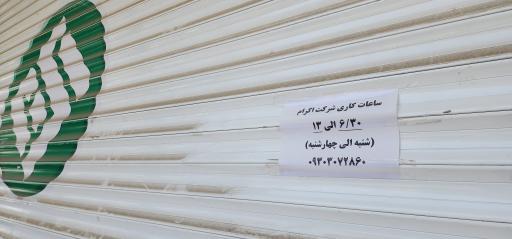 ساعات کاری شرکت اکرام
۶/۳۰ الی ۱۳
(شنبه الی چهارشنبه)
۰۹۳۰۳۰۷۲۸۶۰